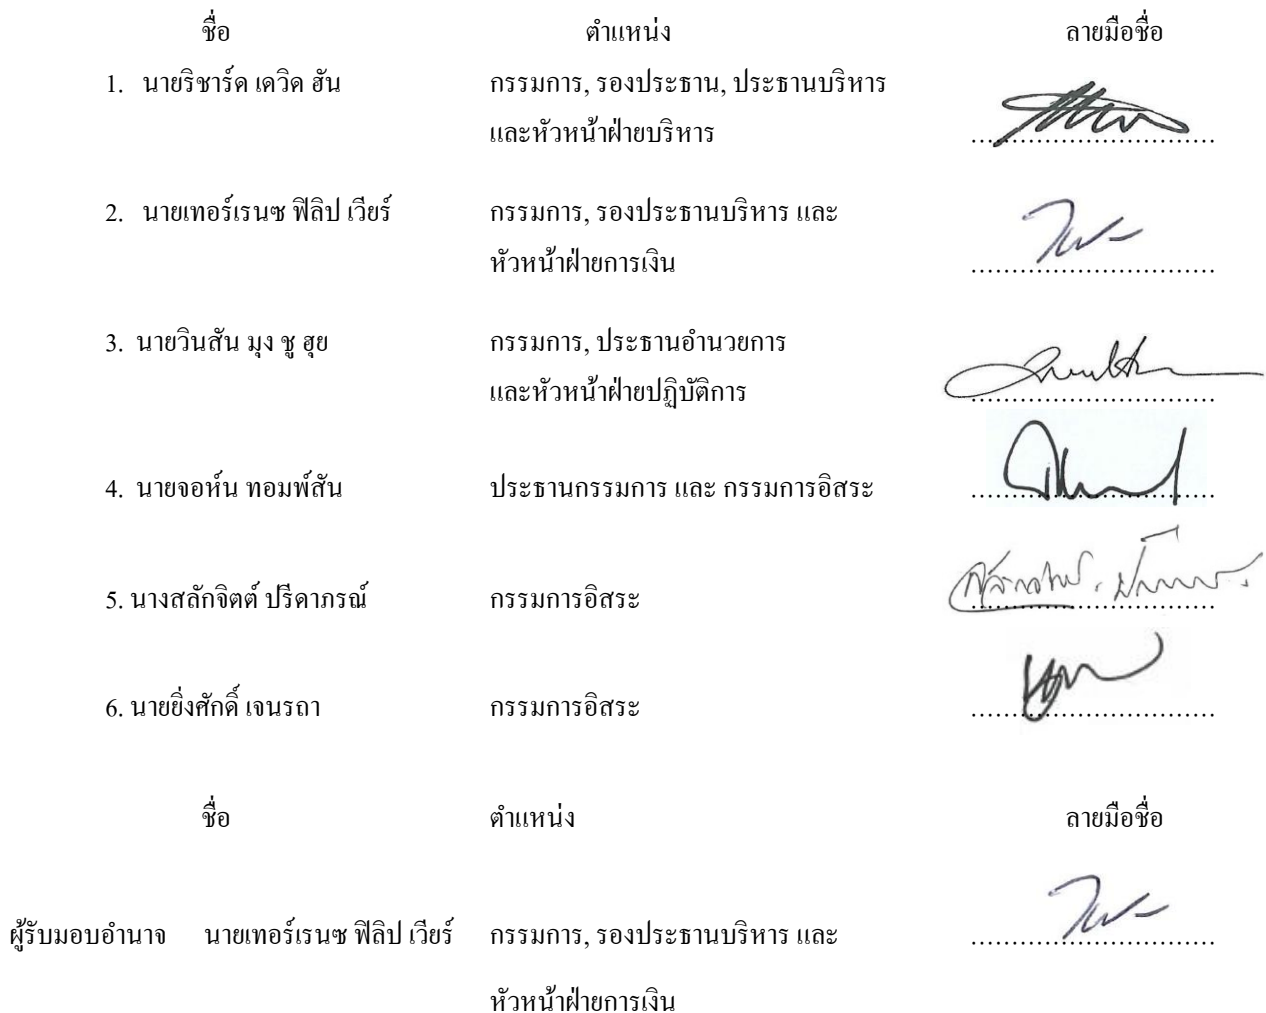 ชื่อ ตำแหน่ง ลายมือชื่อ
1. นายริชาร์ด เดวิด ฮัน กรรมการ, รองประธาน, ประธานบริหาร
และหัวหน้าฝ่ายบริหาร ..............................
2. นายเทอร์เรนซ ฟิลิป เวียร์ กรรมการ, รองประธานบริหาร และ
หัวหน้าฝ่ายการเงิน ..............................
3. นายวินสัน มุง ชู ฮุย กรรมการ, ประธานอำนวยการ
และหัวหน้าฝ่ายปฏิบัติการ ..............................
4. นายจอห์น ทอมพ์สัน ประธานกรรมการ และ กรรมการอิสระ ..............................
5. นางสลักจิตต์ ปรีดาภรณ์ กรรมการอิสระ ..............................
6. นายยิ่งศักดิ์ เจนรถา กรรมการอิสระ ..............................
ชื่อ ตำแหน่ง ลายมือชื่อ
ผู้รับมอบอำนาจ นายเทอร์เรนซ ฟิลิป เวียร์ กรรมการ, รองประธานบริหาร และ ..............................
หัวหน้าฝ่ายการเงิน